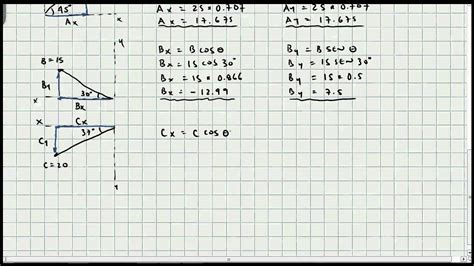 45°
Ax
x
Ax = 25 * 0.707
Ax = 17.675
Ay = 25 * 0.707
Ay = 17.675
y
B = 15
By
30°
x
Bx
Bx = B cos θ
Bx = 15 cos 30°
Bx = 15 * 0.866
Bx = -12.99
By = B sen θ
By = 15 sen 30°
By = 15 * 0.5
By = 7.5
x
Cx
37°
Cy
C = 20
y
Cx = C cos θ